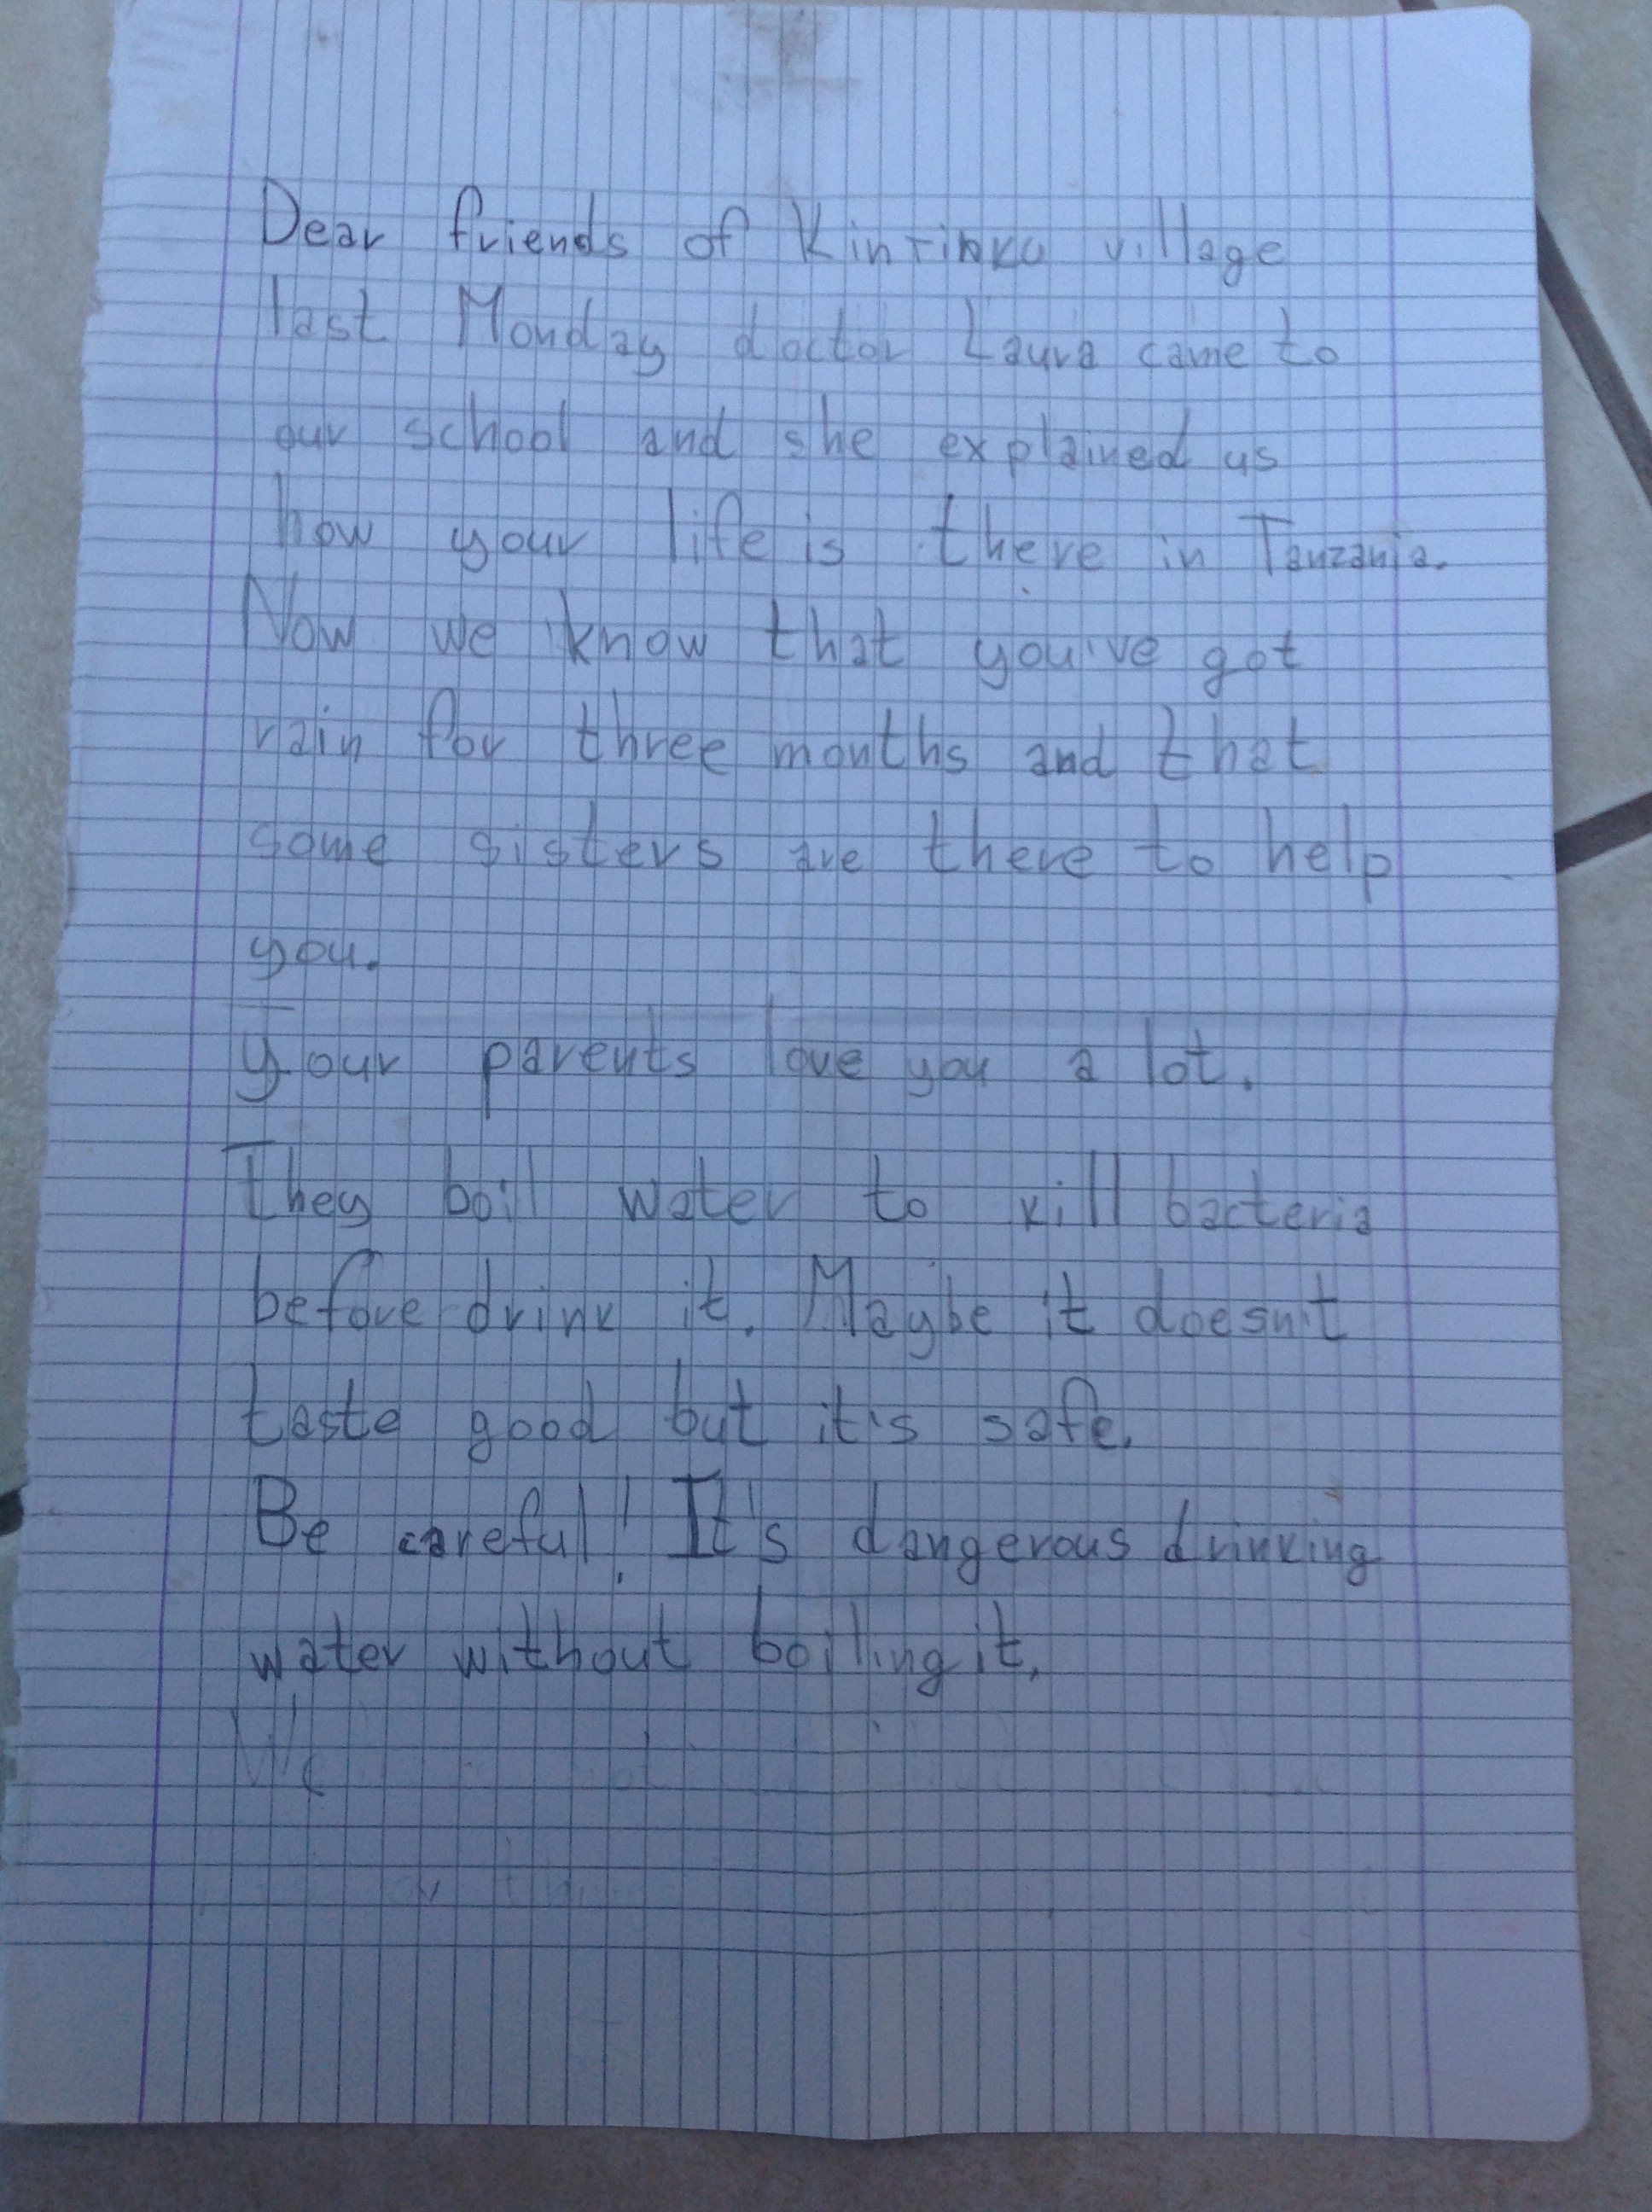 Dear friends of Kintinku village
last Monday doctor Laura came to
our school and she explained us
how your life is there in Tanzania.
Now we know that you've got
rain for three months and that
some sisters are there to help
you.
Your parents love you a lot.
They boil water to kill bacteria
before drink it. Maybe it doesn't
taste good but it's safe.
Be careful! It's dangerous drinking
water without boiling it.
We